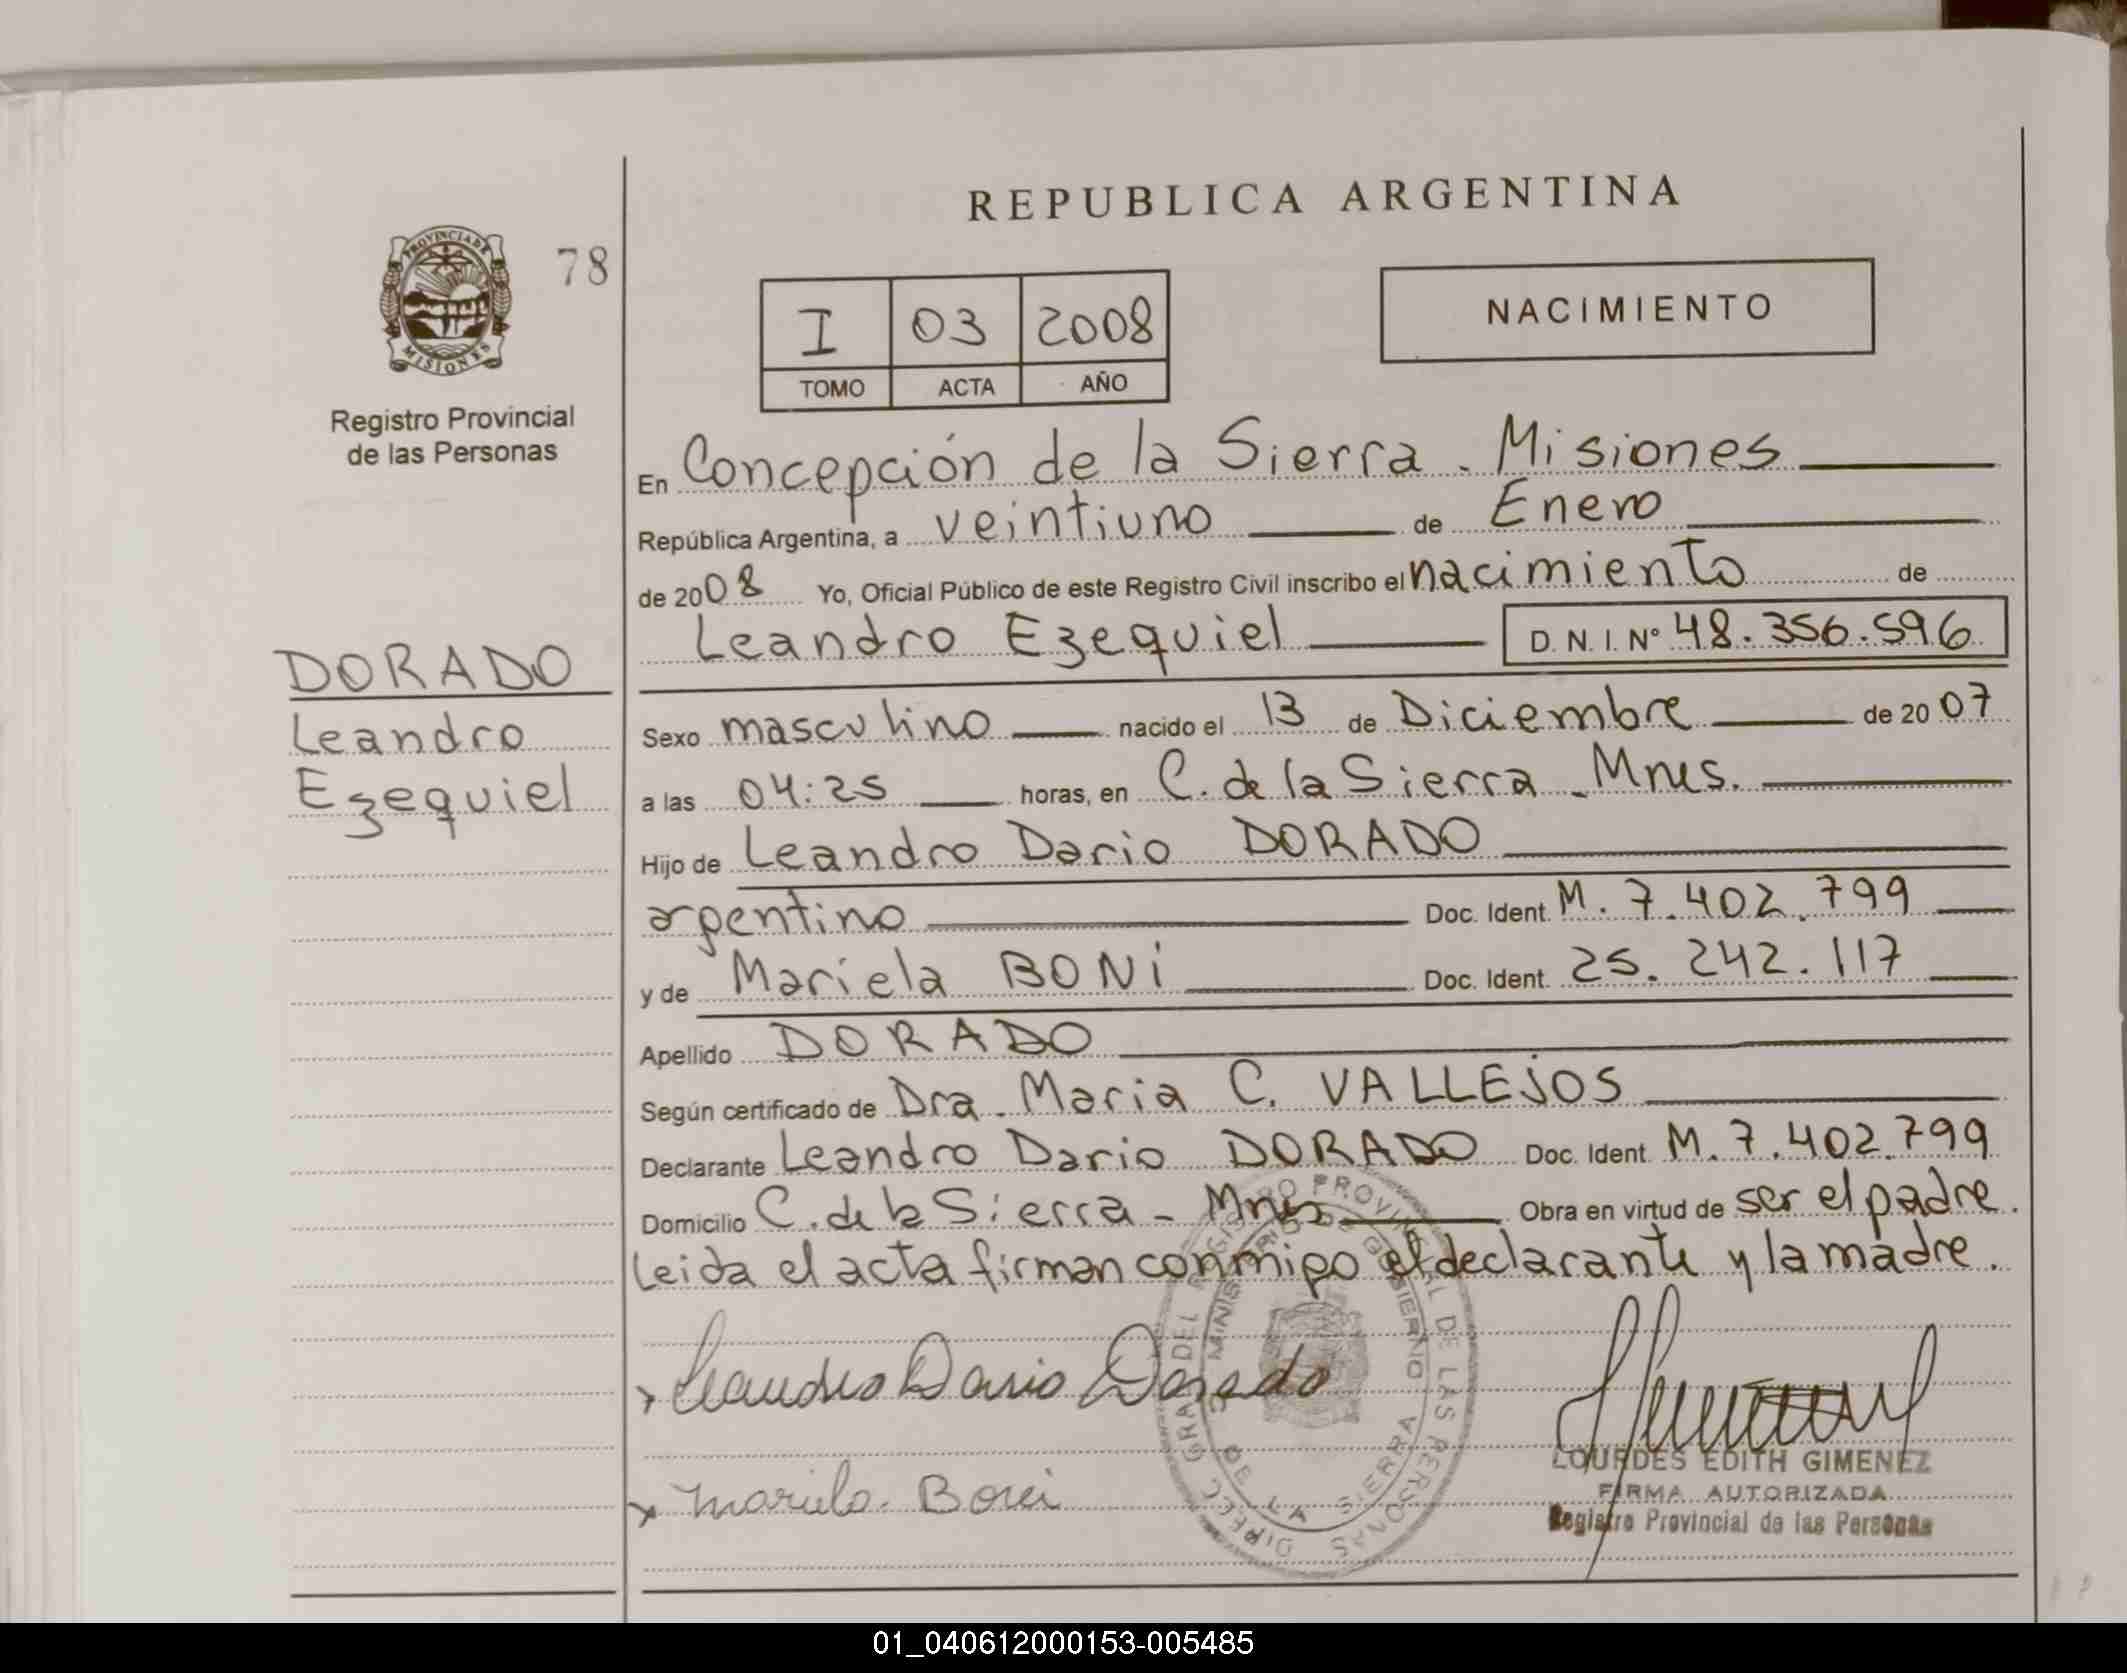 REPUBLICA ARGENTINA
PROVINCIA DE
MISIONES
78
Registro Provincial
de las Personas
I 03 2008
TOMO ACTA AÑO
NACIMIENTO
En Concepción de la Sierra. Misiones
República Argentina, a veintiuno de Enero
de 2008 Yo, Oficial Público de este Registro Civil inscribo el nacimiento de
Leandro Ezequiel D. N. I. Nº 48.356.596
DORADO
Leandro
Ezequiel
Sexo masculino nacido el 13 de Diciembre de 2007
a las 04:25 horas, en C. de la Sierra - Mnes.
Hijo de Leandro Dario DORADO
argentino Doc. Ident. M. 7.402.799
y de Mariela BONi Doc. Ident. 25.242.117
Apellido DORADO
Según certificado de Dra. Maria C. VALLEJOS
Declarante Leandro Dario DORADO Doc. Ident. M. 7.402.799
Domicilio C. de la Sierra - Mnes Obra en virtud de ser el padre.
Leida el acta firman conmigo el declarante y la madre.
Leandro Dario Dorado
Mariela Boni
DIRECC GRAL DEL REGISTRO PROVINCIAL DE LAS PERSONAS
MINISTERIO DE GOBIERNO
C. DE LA SIERRA
LOURDES EDITH GIMENEZ
FIRMA AUTORIZADA
Registro Provincial de las Personas
01_040612000153-005485